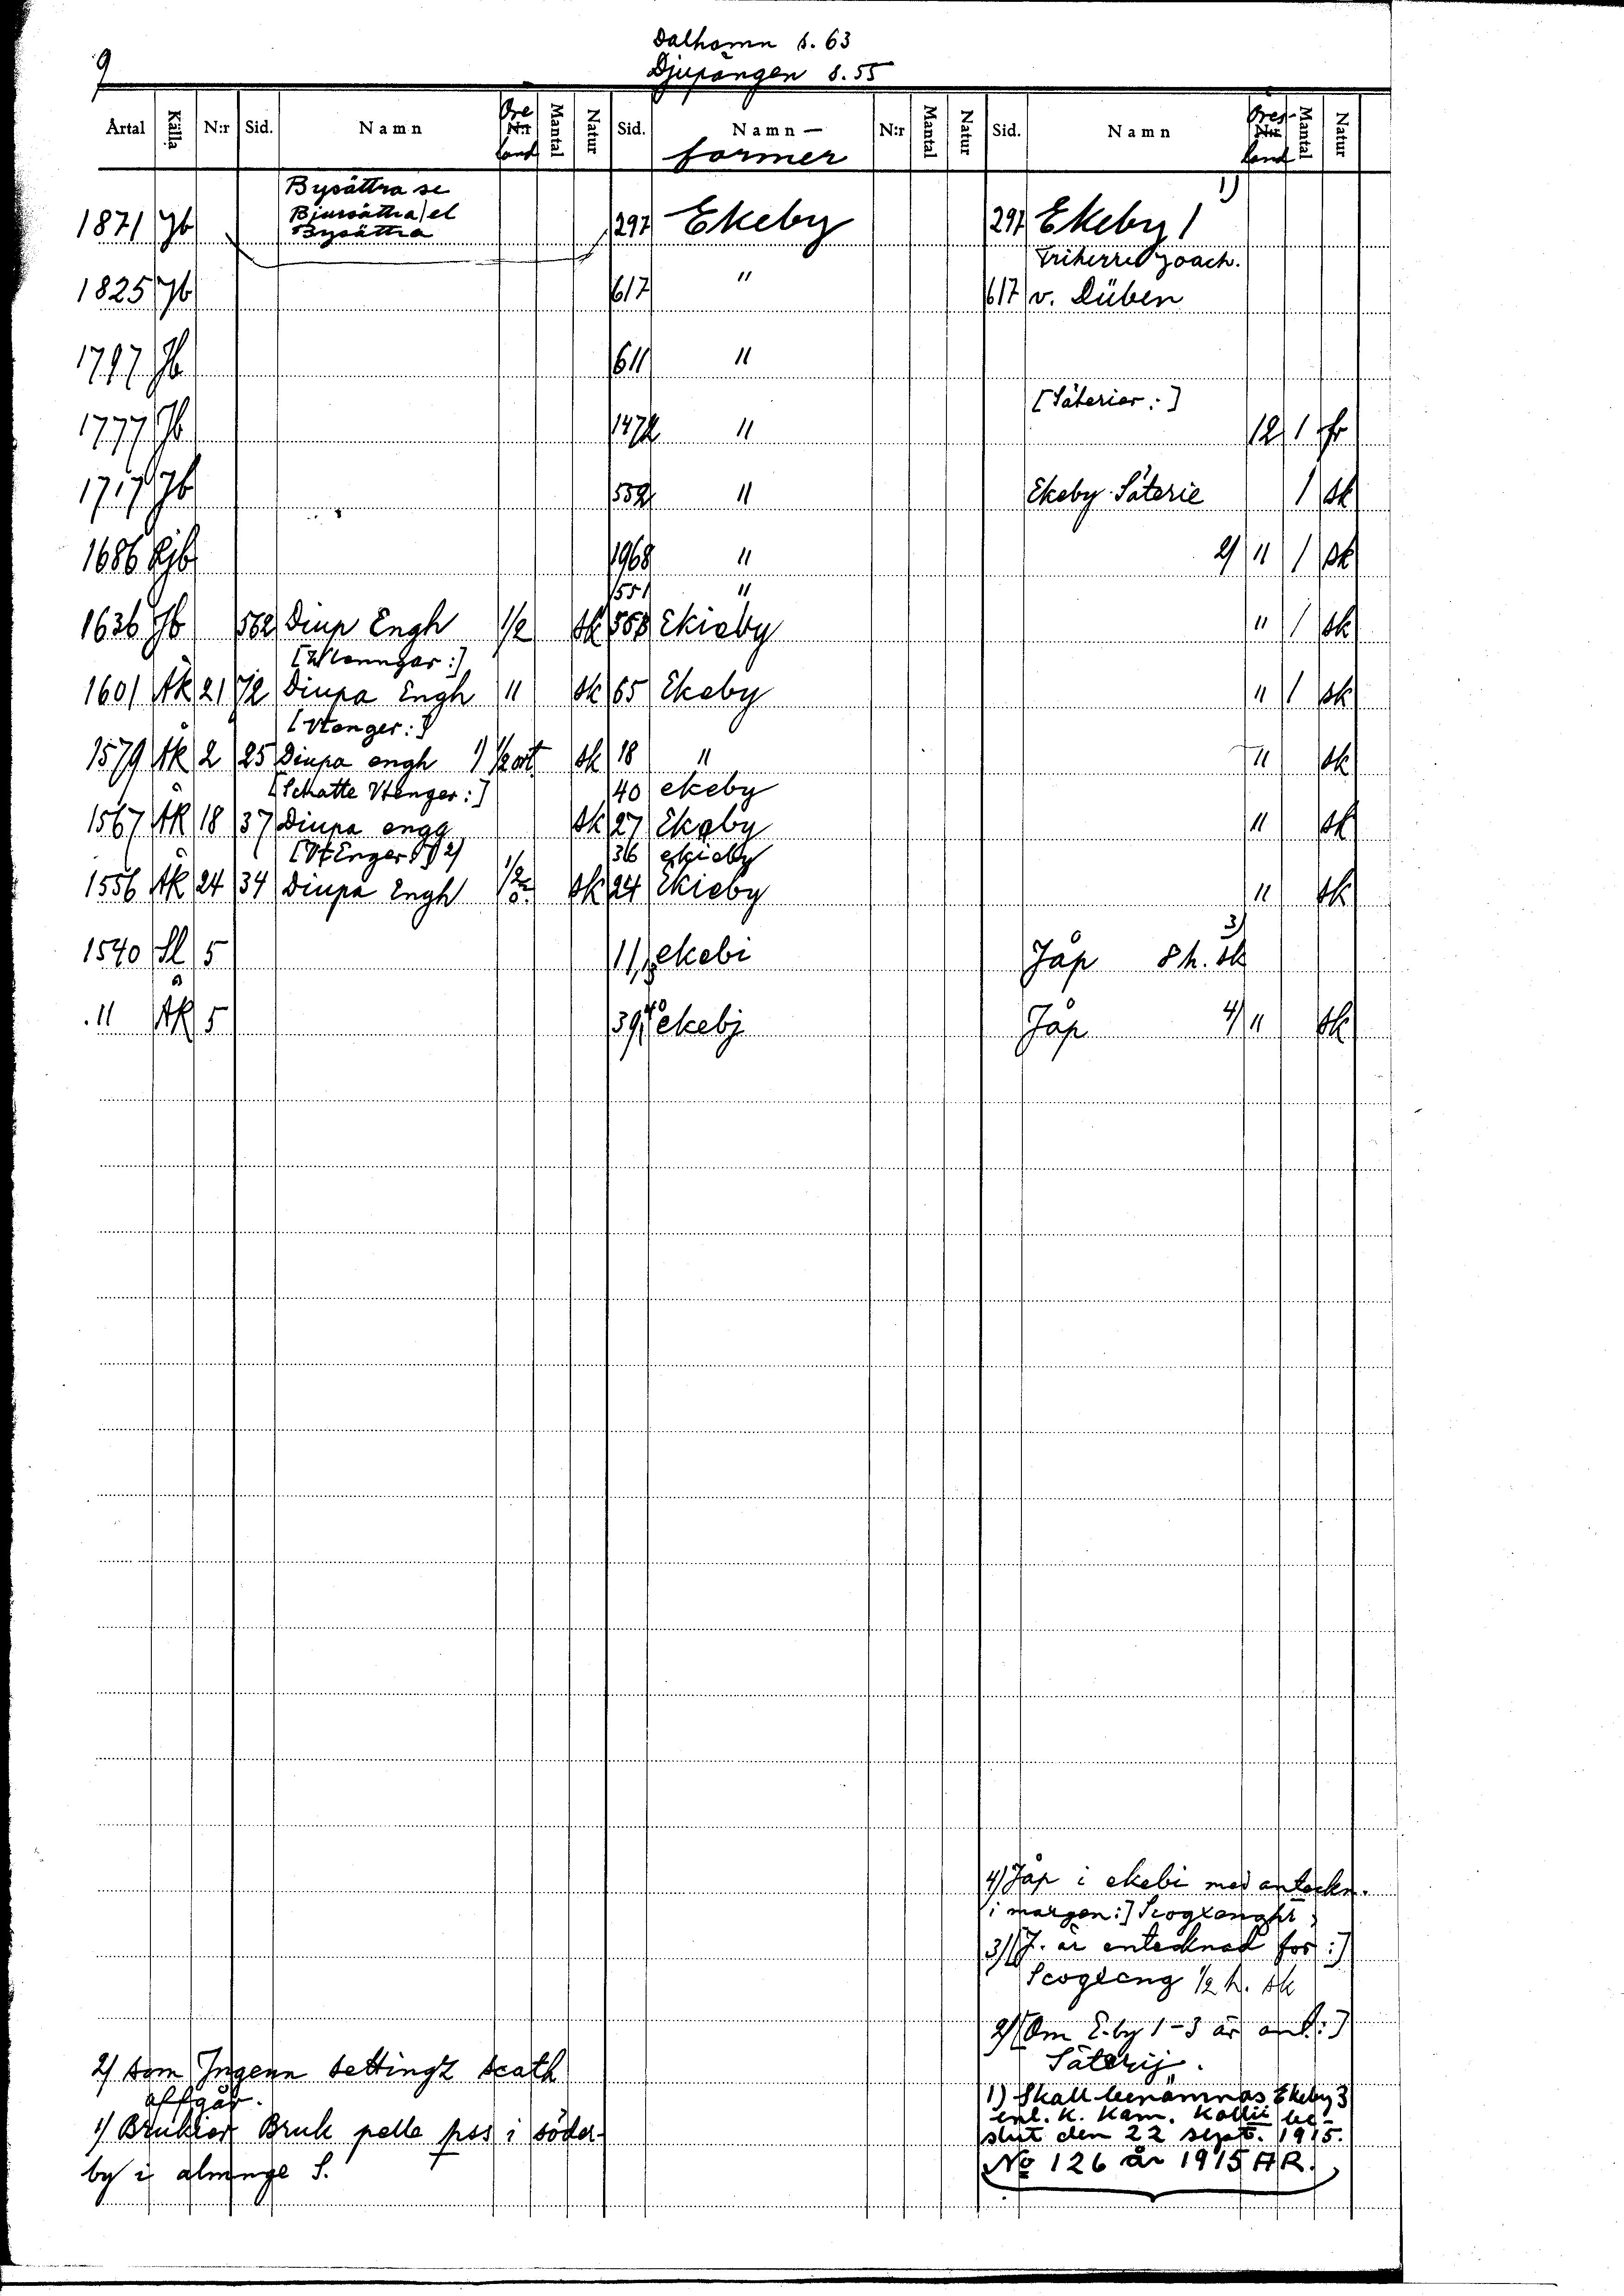 9
Dalhamn s. 63
Djupängen s. 55
Årtal Källa N:r Sid. Namn Öre N:r land Mantal Natur Sid. Namn – former N:r Mantal Natur Sid. Namn Öres- N:r land Mantal Natur
Bysättra se
Bjursättra/el
1871 Jb Bysättra 297 Ekeby 297 Ekeby 1 1)
Friherre Joach.
1825 Jb 617 " 617 v. Düben
1797 Jb 611 "
[Säterier:]
1777 Jb 1472 " 12 1 fr
1717 Jb 552 " Ekeby Säterie 1 sk
1686 Rjb 1968 " 2) " 1 sk
551 "
1636 Jb 562 Diup Engh 1/2 sk 553 Ekieby " 1 sk
1601 ÅK 21 72 Diupa Engh " sk 65 Ekeby " 1 sk
[Vtenger:]
1579 ÅK 2 25 Diupa engh 1) 1/2 ort sk 18 " " sk
[Schatte Vtenger:] 40 ekeby
1567 ÅK 18 37 Diupa engg sk 27 Ekeby " sk
[VtEnger:] 2) 36 ekieby
1556 ÅK 24 34 Diupa Engh 1/2 ö. sk 24 Ekieby " sk
1540 Sl 5 11, ekebi Jåp 8 h. sk 3)
" ÅK 5 39, 40 ekebj Jåp 4) " sk
4) Jåp i ekebi med anteckn.
i margen:]
3) [J. är antecknad för:]
Scogxeng 1/2 h. sk
2) [Om E-by 1-3 är ant.:]
Säterij.
1) Skall benämnas Ekeby 3
enl. K. Kam. Kollii be-
slut den 22 sept. 1915.
No 126 år 1915 AR.
2) som Jngenn settingz scath
affgår.
1) Brukier Bruk pelle pss i söder-
by i almnge S.